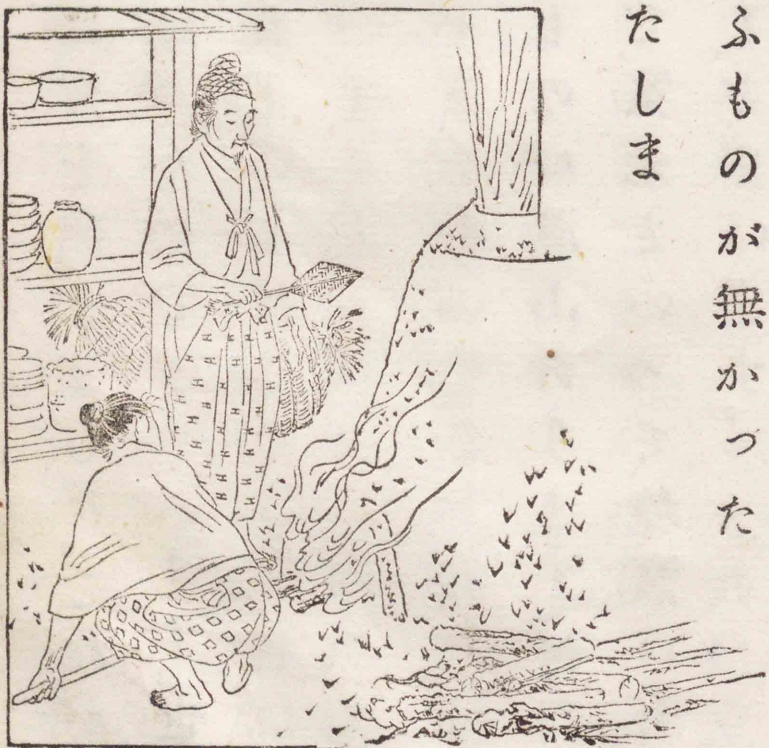 ふものが無かった
たしま